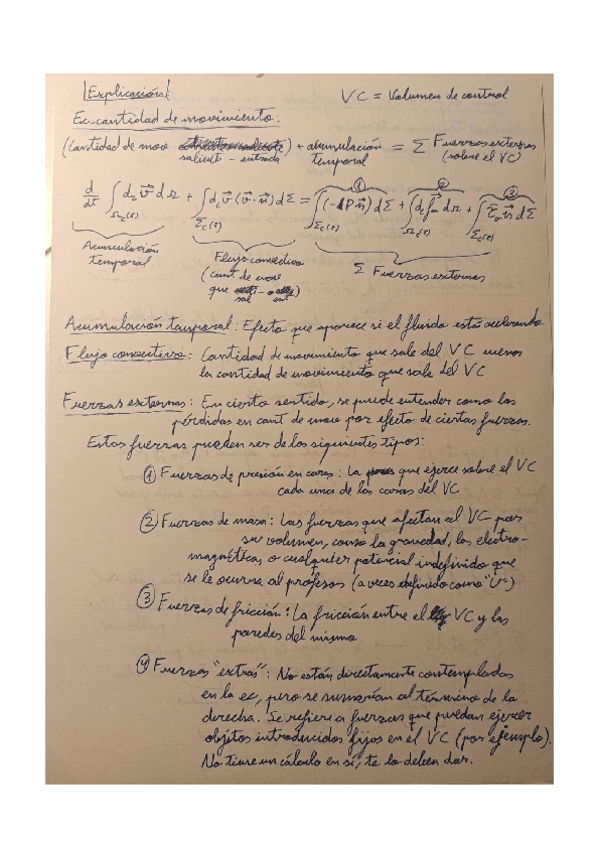 Explicación
VC = Volumen de control
Ec. cantidad de movimiento:
(Cantidad de mov saliente - entrada) + acumulación temporal = Σ Fuerzas externas (sobre el VC)
d/dt ∫ d v⃗ dΩ + ∫ d v⃗ (v⃗·n⃗) dΣ = ∫ (-ΔP n⃗) dΣ + ∫ d f⃗m dΩ + ∫ n⃗ dΣ
① ② ③
Ωc(t) Σc(t) Σc(t) Ωc(t) Σc(t)
Acumulación temporal
Flujo convectivo
(cant de mov
que sal - ent)
Σ Fuerzas externas
Acumulación temporal: Efecto que aparece si el fluido está acelerando
Flujo convectivo: Cantidad de movimiento que sale del VC menos
la cantidad de movimiento que sale del VC
Fuerzas externas: En cierto sentido, se puede entender como las
pérdidas en cant de mov por efecto de ciertas fuerzas.
Estas fuerzas pueden ser de los siguientes tipos:
① Fuerzas de presión en caras: La que ejerce sobre el VC
cada una de las caras del VC
② Fuerzas de masa: Las fuerzas que afectan al VC por
su volumen, como la gravedad, las electro-
magnéticas o cualquier potencial indefinido que
se le ocurra al profesor (a veces definido como "U")
③ Fuerzas de fricción: La fricción entre el VC y las
paredes del mismo
④ Fuerzas "extras": No están directamente contempladas
en la ec, pero se sumarían al término de la
derecha. Se refiere a fuerzas que puedan ejercer
objetos introducidos fijos en el VC (por ejemplo).
No tiene un cálculo en sí, te lo deben dar.